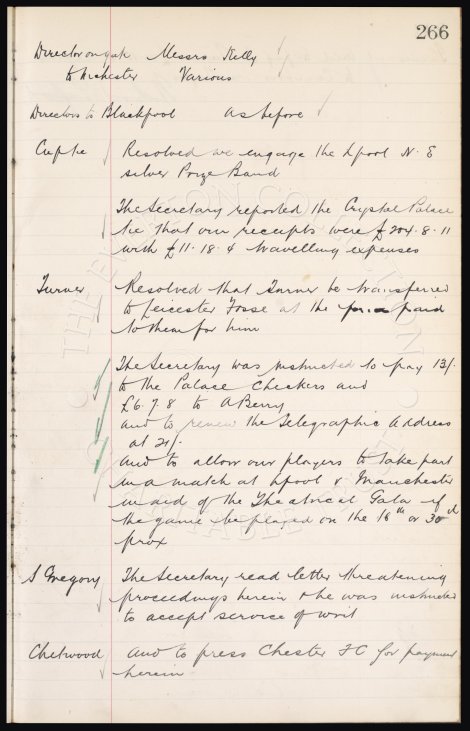 266
Director on gate Messrs Kelly
to Leicester Various
Directors to Blackpool As before
Cup tie Resolved we engage the Lpool N. E
silver Prize Band
The Secretary reported the Crystal Palace
tie that our receipts were £204. 8. 11
with £11. 18. 4 travelling expenses
Turner Resolved that Turner be transferred
to Leicester Fosse at the paid
to them for him
The Secretary was instructed to pay 13/-
to the Palace Checkers and
£6. 7. 8 to A Berry
and to renew the Telegraphic Address
at 21/-
And to allow our players to take part
in a match at Lpool & Manchester
in aid of the Theatrical Gala if
the game be played on the 16th or 30th
prox
S Gregory The Secretary read letter threatening
proceedings herein & he was instructed
to accept service of writ
Chetwood And to press Chester FC for payment
herein
THE EVERTON COLLECTION
CHARITABLE TRUST